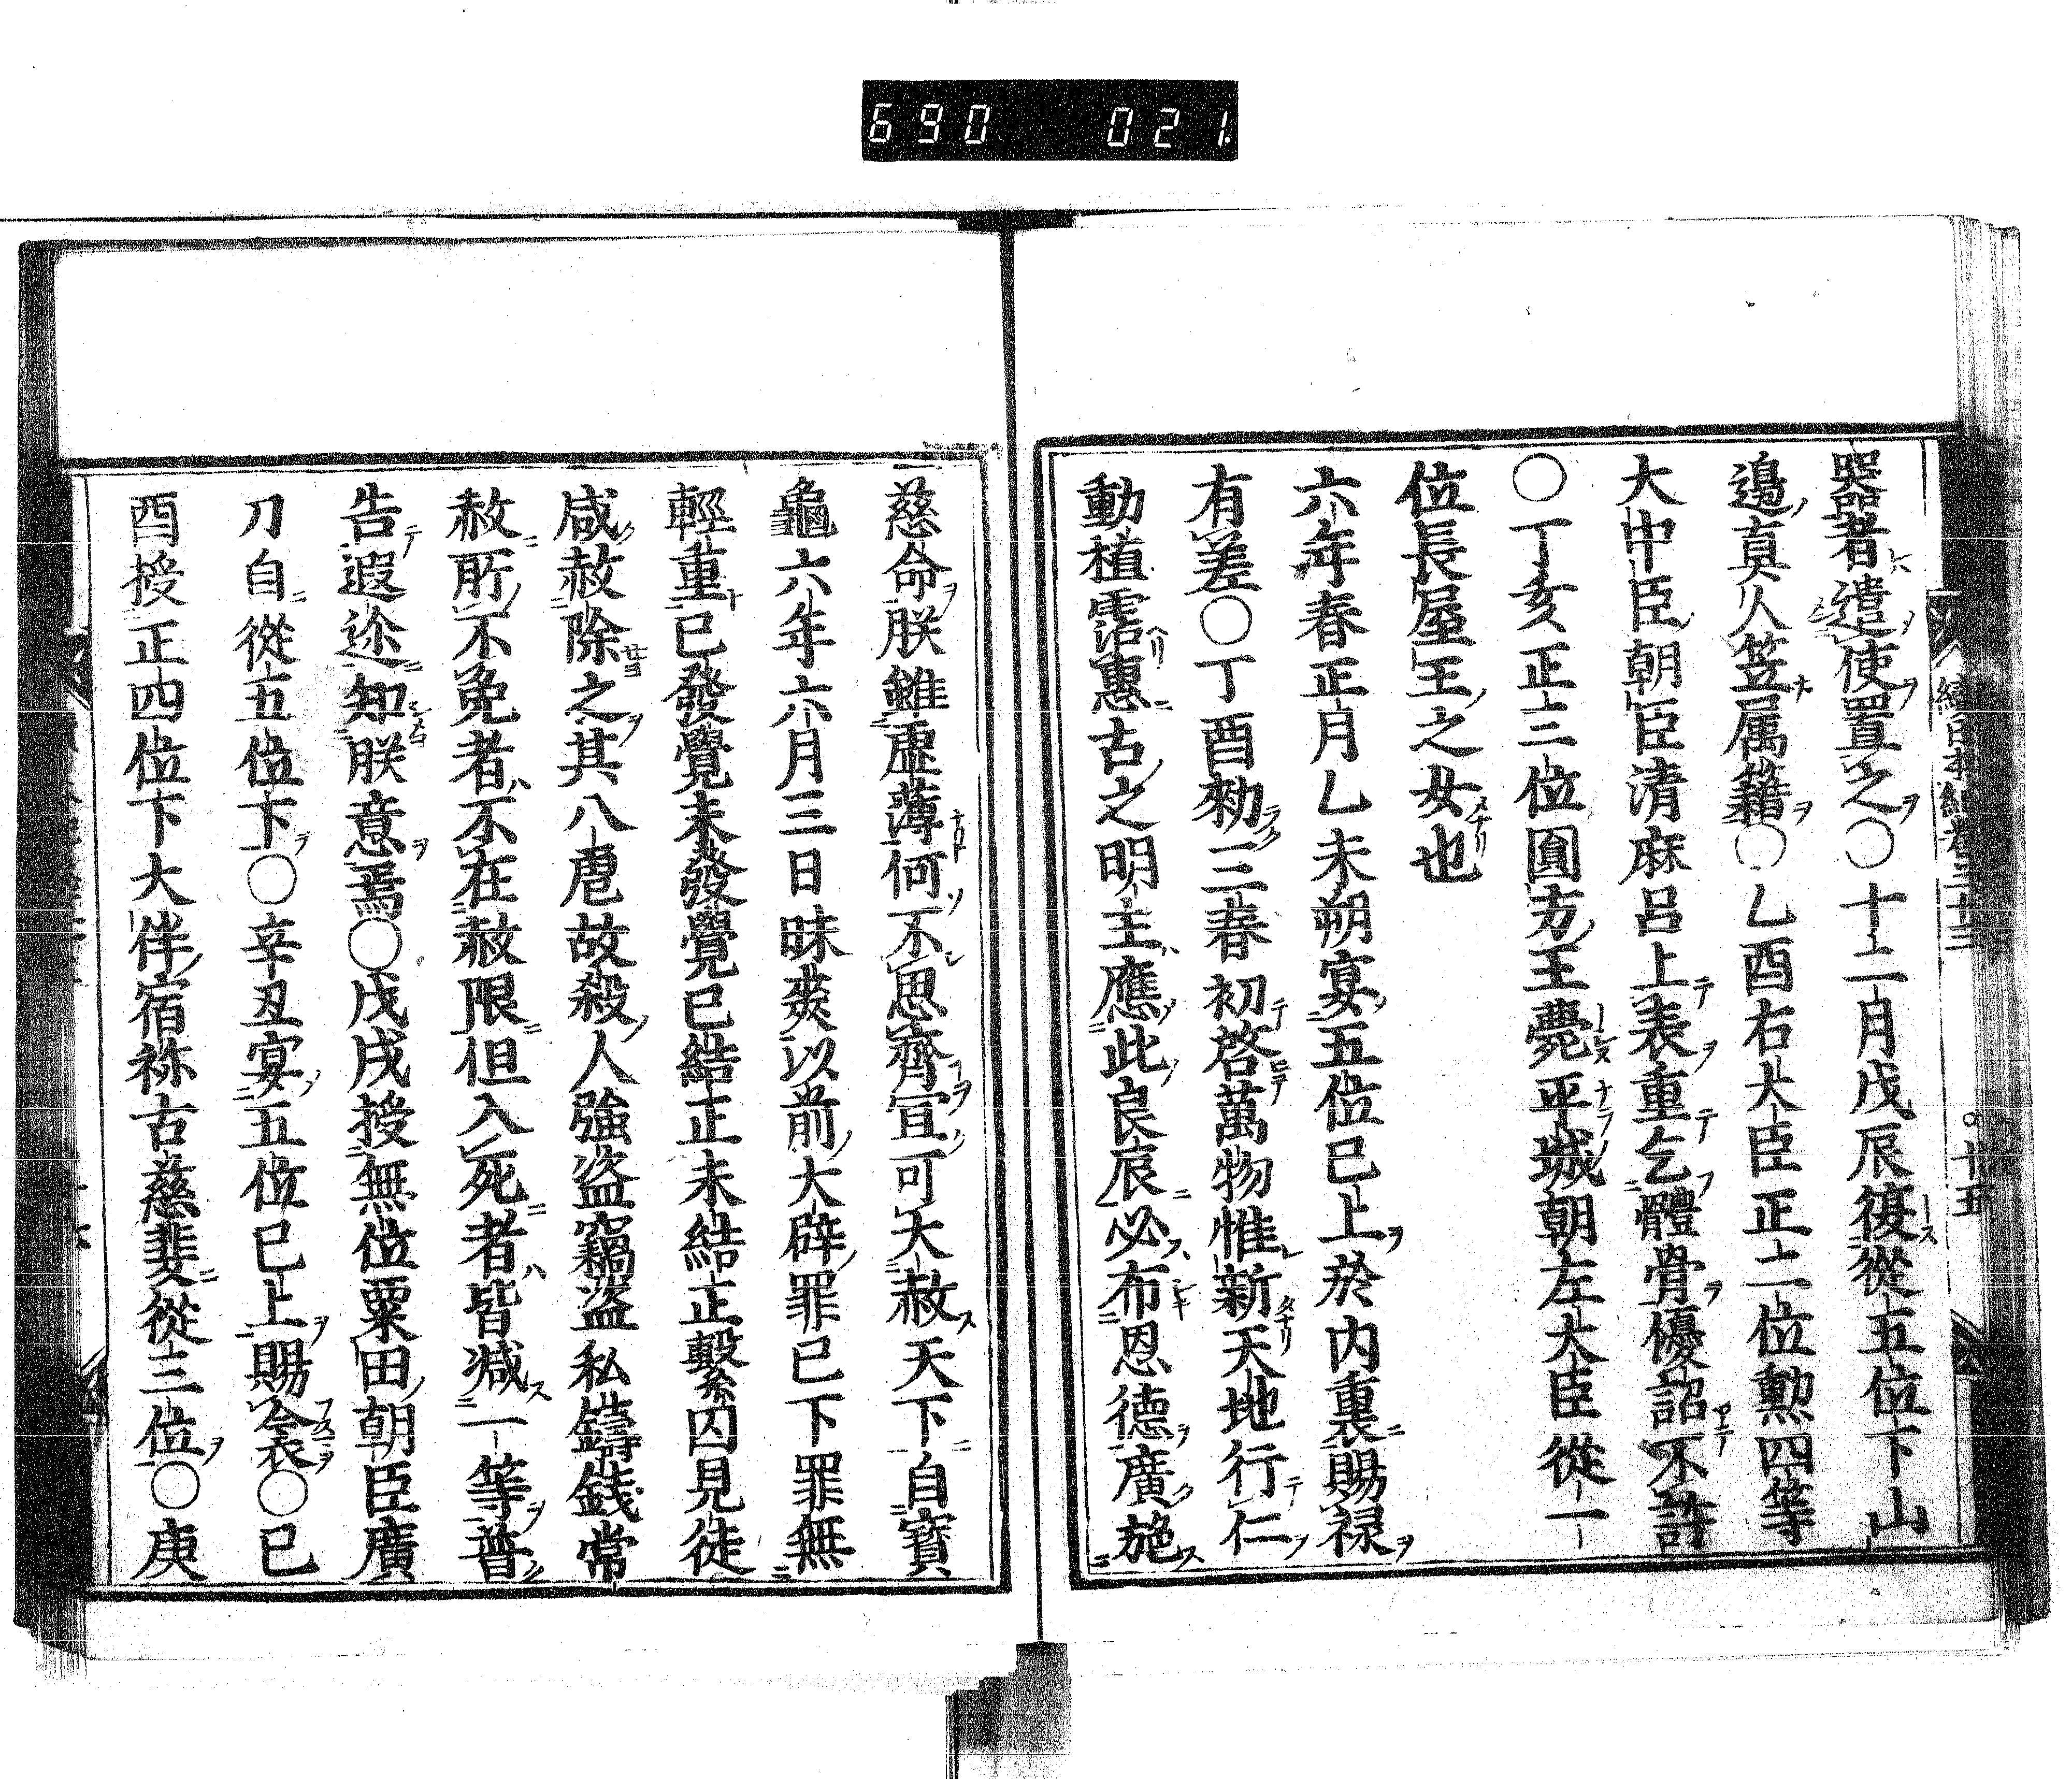 690 021
續日本紀卷三十三 ○十五
器者遣使置之○十二月戊辰復從五位下山
邊真人笠属籍○乙酉右大臣正二位勲四等
大中臣朝臣清麻呂上表重乞體骨優詔不許
○丁亥正三位圓方王薨平城朝左大臣從一
位長屋王之女也
六年春正月乙未朔宴五位已上於内裏賜禄
有差○丁酉勅三春初啓萬物惟新天地行仁
動植霑惠古之明主應此良辰必布恩德廣施
慈命朕雖虚薄何不思齊宜可大赦天下自寶
龜六年六月三日昧爽以前大辟罪已下罪無
輕重已發覺未發覺已結正未結正繫囚見徒
咸赦除之其八虐故殺人強盗竊盗私鑄錢常
赦所不免者不在赦限但入死者皆减一等普
告遐迩知朕意焉○戊戌授無位粟田朝臣廣
刀自從五位下○辛丑宴五位已上賜衾○己
酉授正四位下大伴宿祢古慈斐從三位○庚